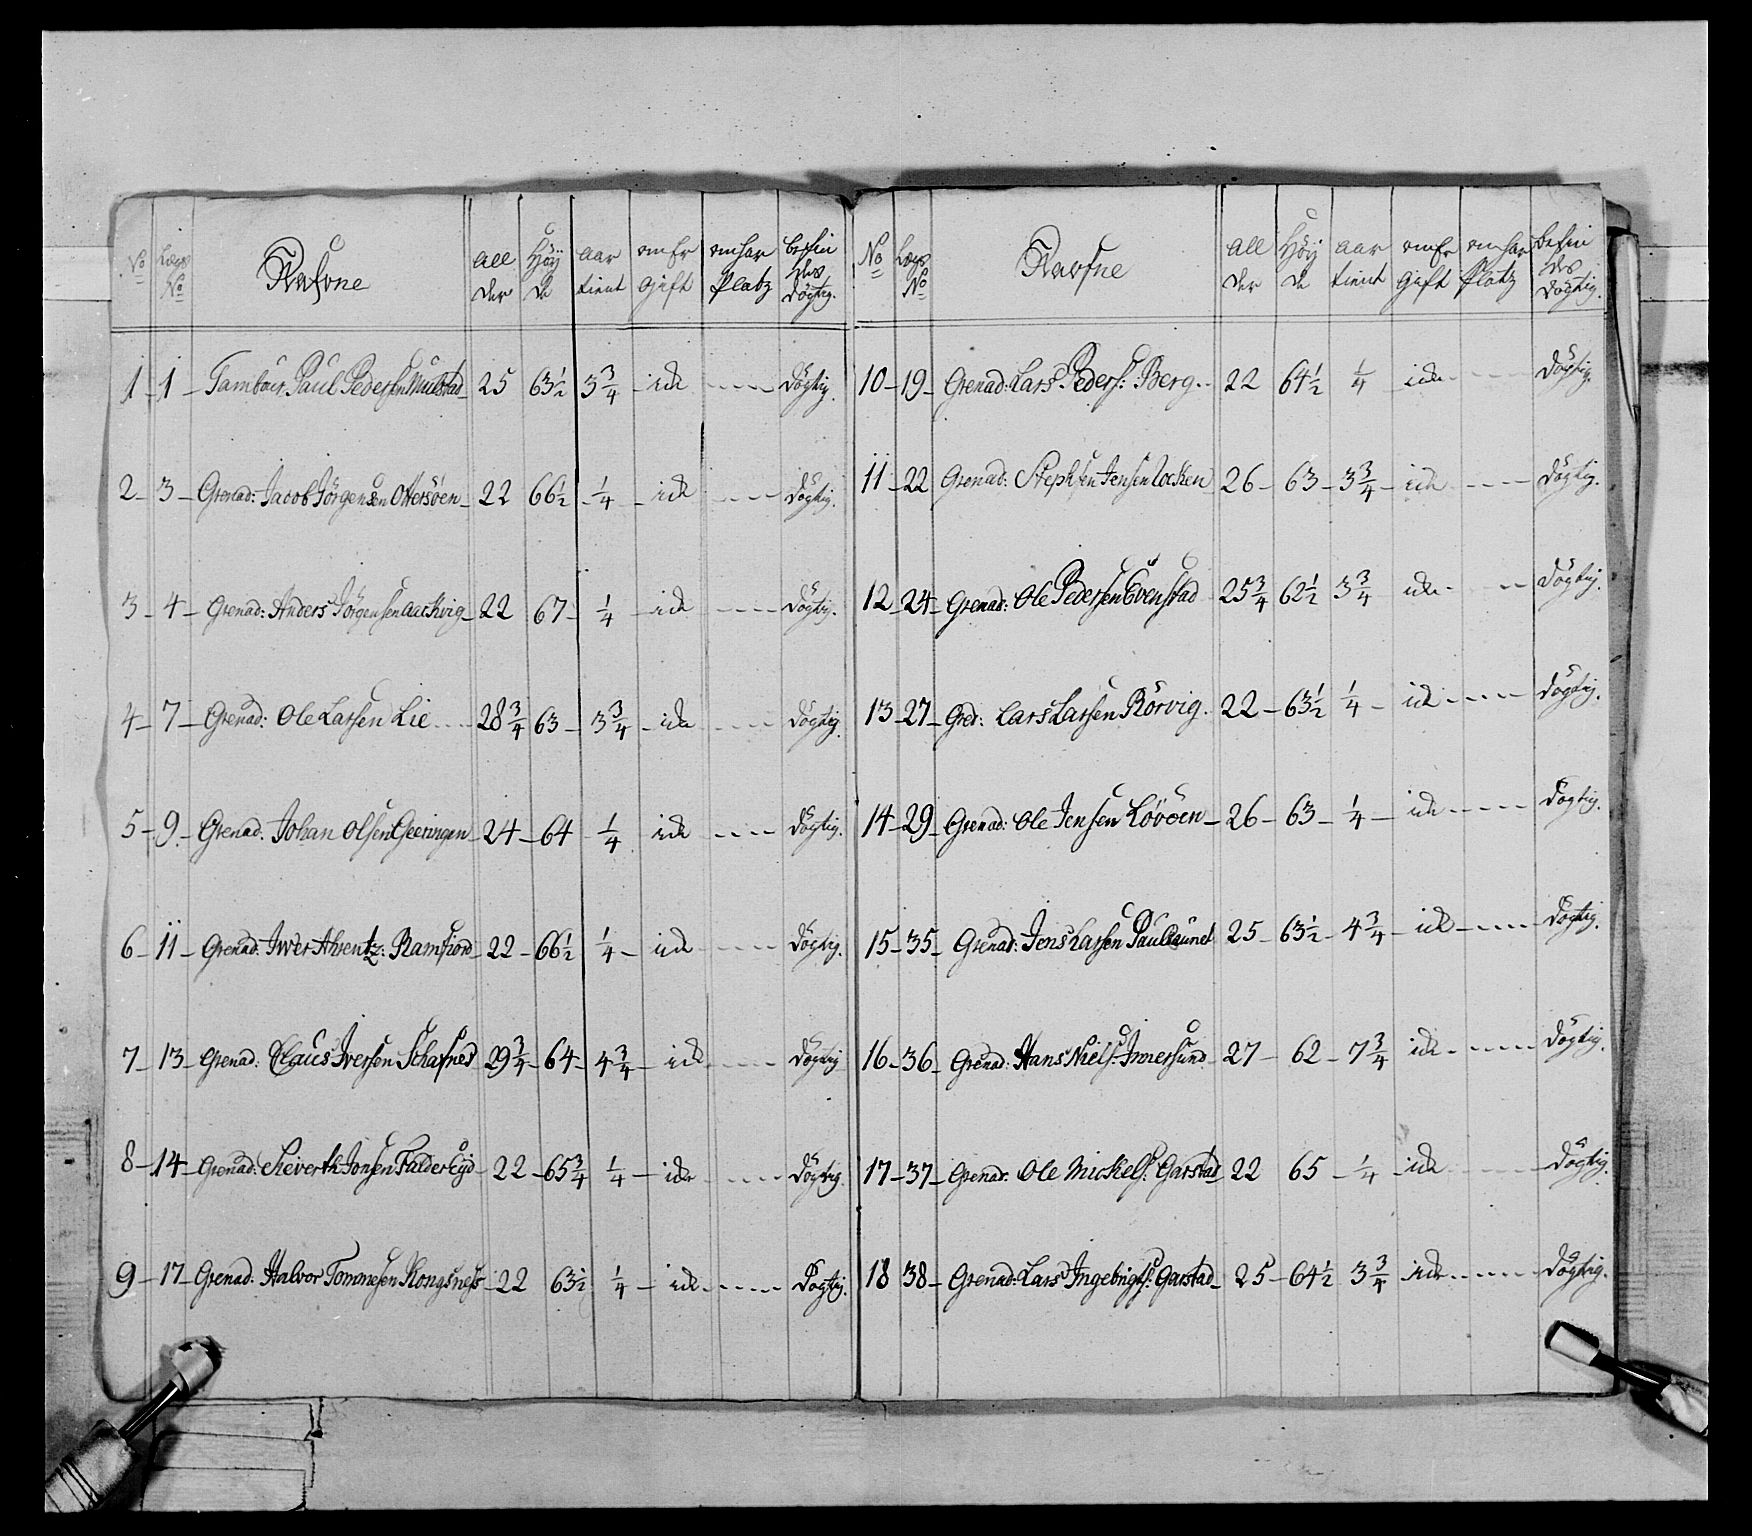 No Lægs No Nafvne All der Höÿ de aar tient om Er Gift om har Platz befin des Dögtig.
1 - 1 - Tambour Paul Pedersen Mulstad 25 63½ 3¾ - ick ---- Dögtig.
2 - 3 - Grenad: Jacob Jörgensen Ottersöen - 22 66½ - ¼ - ick ---- Dögtig.
3 - 4 - Grenad: Anders Jörgensen - 22 67 - ¼ - ick ---- Dögtig.
4 - 7 - Grenad: Ole Larsen Lie ---- 28¾ 63 - 3¾ - ick ---- Dögtig.
5 - 9 - Grenad. Johan Olsen Geeringen - 24 - 64 - ¼ ick ---- Dögtig.
6 - 11 - Grenad. Iver Ahrentz: Ramfiord - 22 - 66½ ¼ - ick ---- Dögtig.
7 - 13 - Grenad: Claus Iversen Schafned 29¾ - 64 - 4¾ - ick ---- Dögtig
8 - 14 - Grenad: Sieverth Jonsen Falder Eyd 22 - 65¾ ¼ - ick ---- Dögtig.
9 - 17 - Grenad. Halvor Tommesen Kongsness 22 63½ ¼ - ick ---- Dögtig.
No Lægs No Navfne all der Höÿ de aar tient om Er Gift om har Platz befin des Dögtig.
10 - 19 - Grenad: Lars Peders: Berg - 22 64½ ¼ - ick ---- Dögtig.
11 - 22 Grenad: Stephen Jensen Locken 26 - 63 - 3¾ - ick ---- Dögtig.
12 - 24 - Grenad: Ole Pedersen Evenstad 25¾ 62½ 3¾ ick ---- Dögtig.
13 - 27 - Gred: Lars Larsen Rörvig. 22 - 63½ ¼ - ick ---- Dögtig.
14 - 29 - Grenad: Ole Jensen Lövöen - 26 - 63 - ¼ - ick ---- Dögtig.
15 - 35 - Grenad: Jens Larsen Paulsaunet 25 - 63½ - 4¾ - ick ---- Dögtig.
16 - 36 - Grenad: Hans Niels: Imersund 27 - 62 - 7¾ ick ---- Dögtig.
17 - 37 - Grenad: Ole Mickels: Garstad 22 65 - ¼ - ick ---- Dögtig.
18 38 - Grenad: Lars Ingebrigts: Garstad - 25 - 64½ 3¾ - ick ---- Dögtig.